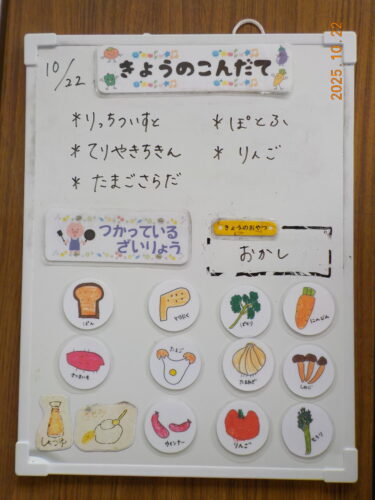 10/22
きょうのこんだて
2025.10.22
*りっちついすと
*ぽとふ
*てりやきちきん
*りんご
*たまごさらだ
つかっている
ざいりょう
きょうのおやつ
おかし
ぱん
とりにく
ぱせり
にんじん
さつまいも
たまご
たまねぎ
しめじ
しょうゆ
ウインナー
りんご
せろり